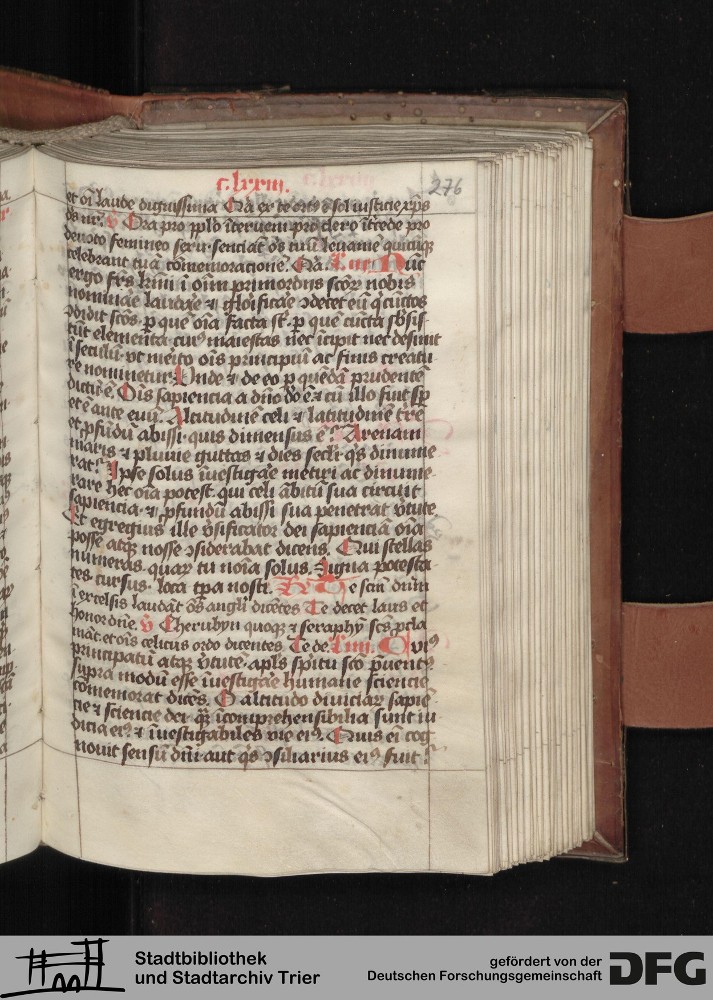 c.lxxiii. 276
et oi͂ laude dignissima Q̄a ex te ortꝰ ē sol iusticie xp̄s
ds̄ nr̄. v Ora pro pp̄lo īterveni pro clero ītcede pro
devoto femineo sexu senciāt oēs tuū levamē quicūqꝫ
celebrant tuā cōmemoracionē. Q̄a. Nūc
ergo fr̄s km̄i ī oīm primordiis scōꝝ nobis
ꝯdidit scōs. p quē oīa facta sūt. p quē cūcta sbsis-
tūt elementa. cuiꝰ maiestas nec īcipit nec desinit
ī seculū. vt merito oīs principiū ac finis creatu-
re nominetur. Vnde ⁊ de eo p quēdā prudentē
dictū ē. Oīs sapiencia a dn̄o do ē. ⁊ cū illo fuit sp̄
et ē ante evū. Altitudinē celi ⁊ latitudinē tr̄e
et ꝓfūdū abissi. quis dimensus ē? Arenam
maris ⁊ pluvie guttas ⁊ dies secli. qͥs dinume-
rat? Ipse solus īvestigare metiri ac dinume-
rare hec oīa potest. qui celi ābitū sua circuit
sapiencia. ⁊ ꝓfundū abissi sua penetrat v̄tute
Et egregius ille v̄sificator dei sapienciā oīa
posse atqꝫ nosse ꝯsiderabat dicens. Qui stellas
numeras. quaꝝ tu noīa solus. Signa potesta-
tes. cursus. loca tp̄a nosti. Te scm̄ dnm̄
ī excelsis laudāt oēs angli dicētes Te decet laus et
honor dn̄e. v Cherubyn quoqꝫ ⁊ seraphȳ scs̄ ꝓcla-
māt. et oīs celicus ordo dicentes. Te de.
principatū atqꝫ v̄tutē. apl̄s sp̄itu scō p̄venctꝰ
supra modū esse īvestigare humane sciencie
cōmemorat dicēs. O altitudo diviciaꝝ sapiē-
cie ⁊ sciencie dei. qꝫ īcomprehensibilia sunt iu-
dicia eiꝰ ⁊ īvestigabiles vie eiꝰ. Quis eī cog-
novit sensū dn̄i. aut qͥs ꝯsiliarius eiꝰ fuit?
Stadtbibliothek
und Stadtarchiv Trier
gefördert von der
Deutschen Forschungsgemeinschaft
DFG